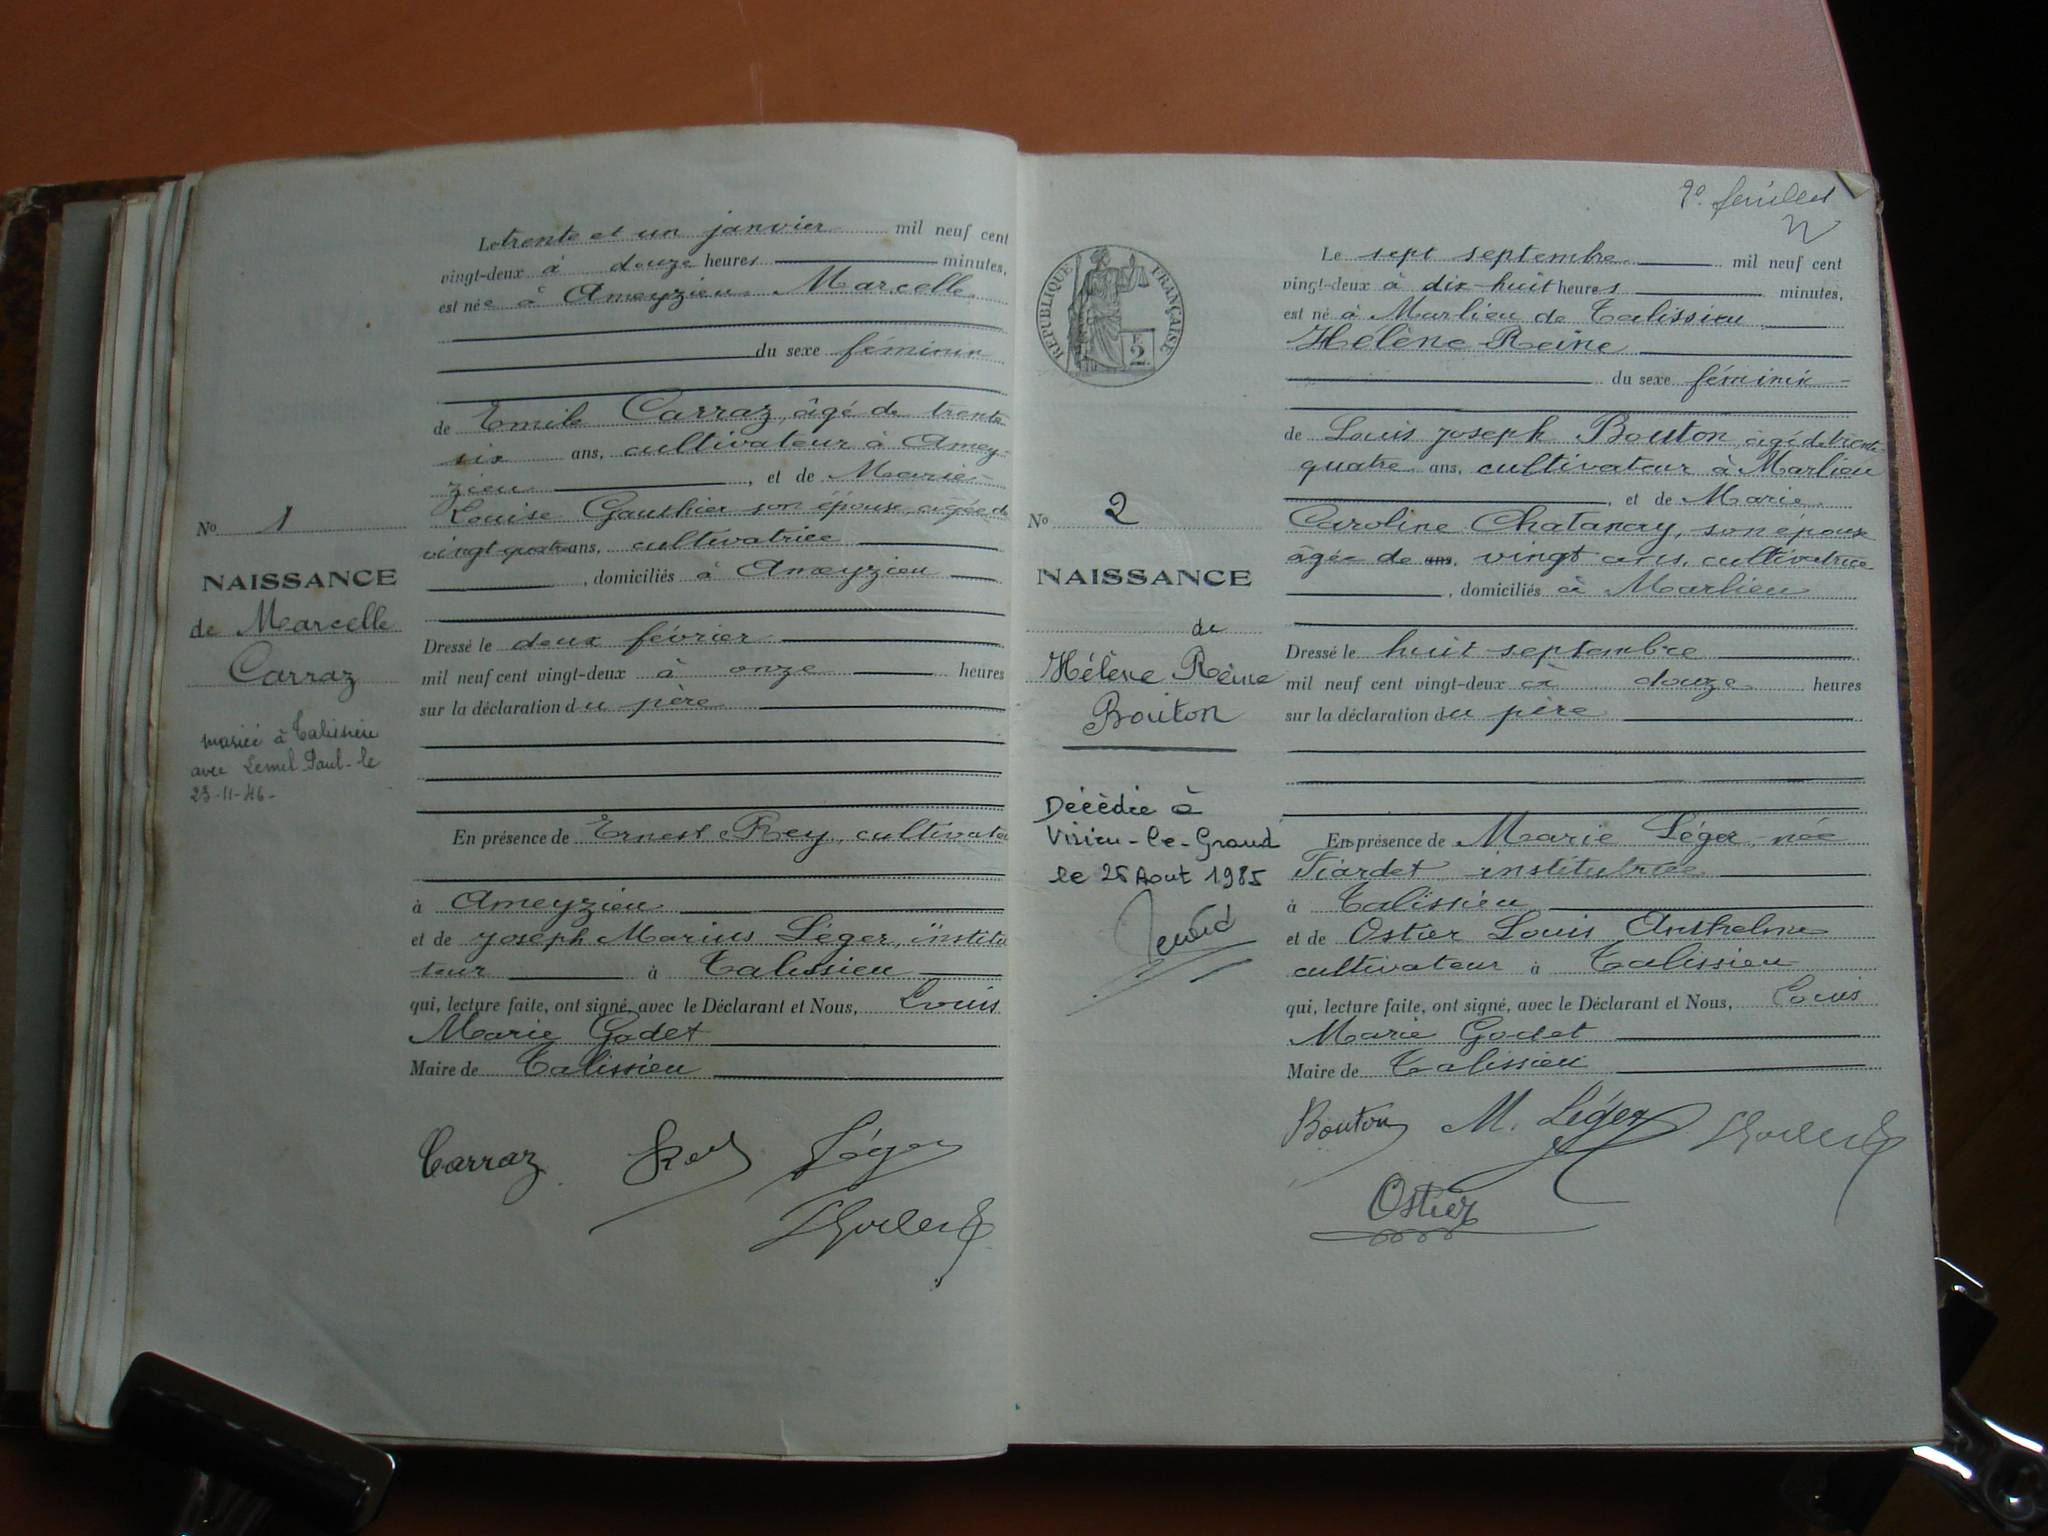 Le trente et un janvier mil neuf cent
vingt-deux à douze heures minutes,
est née à Ameyzieu Marcelle
du sexe féminin
de Emile Carraz, âgé de trente
six ans, cultivateur à Amey-
zieu, et de Marie-
Louise Gauthier son épouse, âgée de
vingt quatre ans, cultivatrice
, domiciliés à Ameyzieu
Nº 1
NAISSANCE
de Marcelle
Carraz
mariée à Talissieu
avec Paul le
23-11-46-
Dressé le deux février
mil neuf cent vingt-deux à onze heures
sur la déclaration du père
En présence de Ernest Rey, cultivateu
à Ameyzieu
et de Joseph Marius Léger, institu
teur à Talissieu
qui, lecture faite, ont signé, avec le Déclarant et Nous, Louis
Marie Godet
Maire de Talissieu
Carraz Rey Léger
LGodet
2e feuillet
RÉPUBLIQUE FRANÇAISE
2
Le sept septembre mil neuf cent
vingt-deux à dix-huit heures minutes,
est né à Marlieu de Talissieu
Hélène Reine
du sexe féminin
de Louis Joseph Bouton, âgé de trente
quatre ans, cultivateur à Marlieu
, et de Marie
Caroline, son épouse
âgée de ans, vingt ans, cultivatrice
, domiciliés à Marlieu
Nº 2
NAISSANCE
de
Hélène Reine
Bouton
Décédée à
Virieu-le-Grand
le Aout 1985
Dressé le huit septembre
mil neuf cent vingt-deux à douze heures
sur la déclaration du père
En présence de Marie Léger, née
institutrice
à Talissieu
et de Ostier Louis Anthelme
cultivateur à Talissieu
qui, lecture faite, ont signé, avec le Déclarant et Nous, Louis
Marie Godet
Maire de Talissieu
Bouton M. Léger LGodet
Ostier